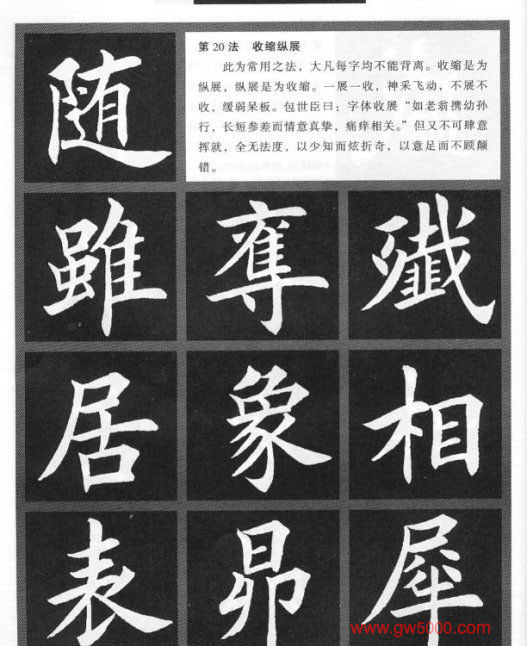 随
第20法 收缩纵展
此为常用之法，大凡每字均不能背离。收缩是为
纵展，纵展是为收缩。一展一收，神采飞动，不展不
收，缓弱呆板。包世臣曰：字体收展“如老翁携幼孙
行，长短参差而情意真挚，痛痒相关。”但又不可肆意
挥就，全无法度，以少知而炫折奇，以意足而不顾颠
错。
雖 奪 殲
居 象 相
表 昴 犀
www.gw5000.com